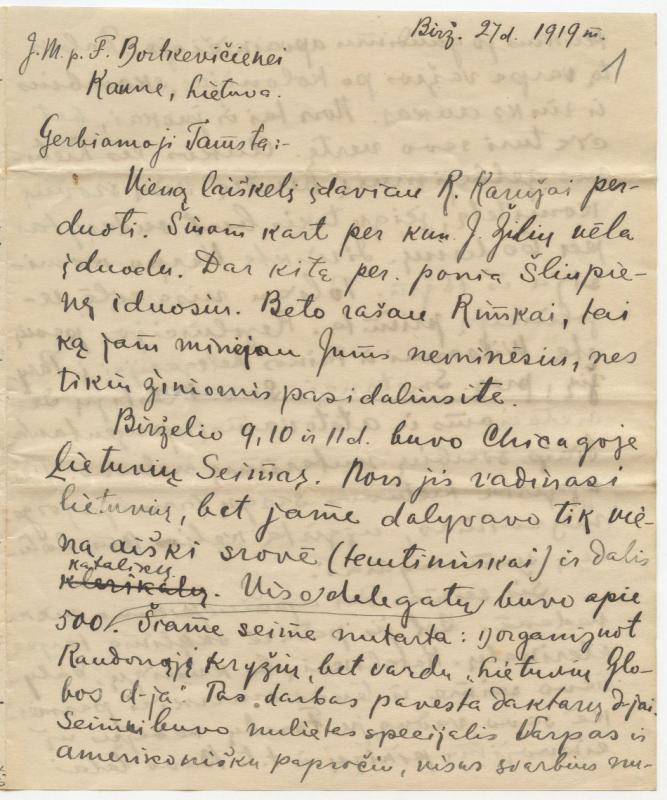 Birž. 27 d. 1919 m.
1
J. M. p. F. Bortkevičienei
Kaune, Lietuva.
Gerbiamoji Tamsta:-
Vieną laiškelį įdaviau R. Karužai per-
duoti. Šiuom kart per kun. J. Žilių vėla
įduodu. Dar kitą per ponią Šliupie-
nę įduosiu. Beto rašau Rimkai, tai
ką jam minėjau Jums neminėsiu, nes
tikiu žiniomis pasidalinsite.
Birželio 9, 10 ir 11 d. buvo Chicagoje
Lietuvių Seimas. Nors jis vadinasi
lietuvių, bet jame dalyvavo tik vie-
na aiški srovė (tautininkai) ir dalis
katalikų
klerikalų. Viso delegatų buvo apie
500. Šiame seime nutarta: 1) organizuot
Raudonąjį Kryžių, bet vardu „Lietuvių Glo-
bos d-ja". Tas darbas pavesta daktarų d-jai.
Seimui buvo nulietas specijalis Varpas ir
amerikonišku papročiu, visus svarbius nu-